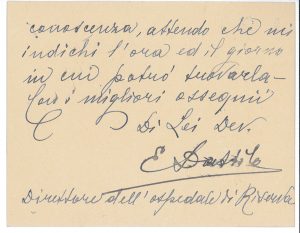 conoscenza, attendo che mi
indichi l'ora ed il giorno
in cui potrò trovarla -
Con i migliori ossequii
Di Lei Dev.
E Dattilo
Direttore dell'ospedale di